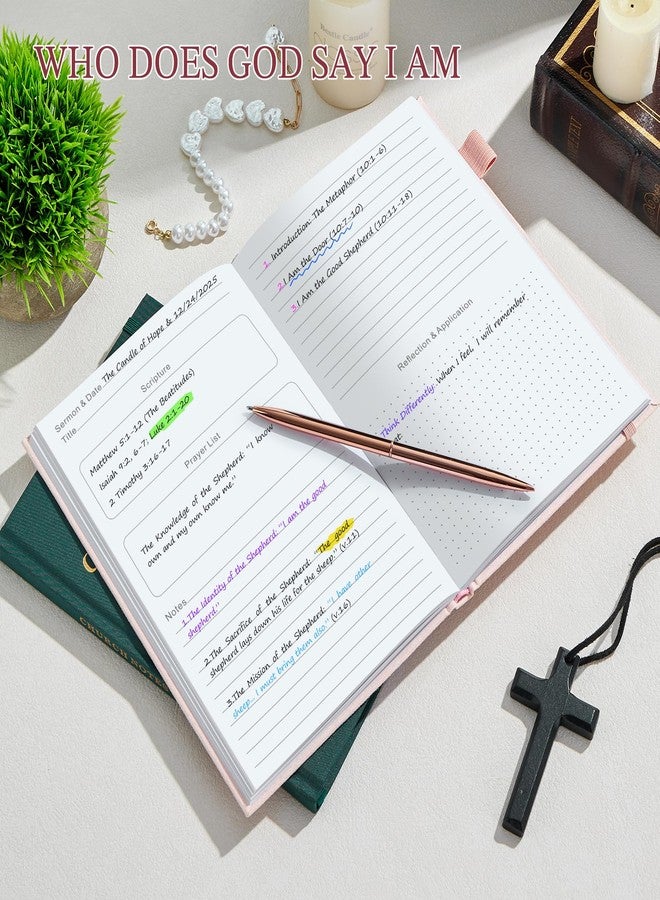 WHO DOES GOD SAY I AM
Beatle Candle
Sermon & Date The Candle of Hope & 12/24/2025
Title
Scripture
Matthew 5:1-12 (The Beatitudes)
Isaiah 9:2, 6-7, Luke 2:1-20
2 Timothy 3:16-17
Prayer List
The Knowledge of the Shepherd: "I know
own and my own know me."
Notes
1.The Identity of the Shepherd: "I am the good
shepherd."
2.The Sacrifice of the Shepherd: "The good
shepherd lays down his life for the sheep." (v.11)
3.The Mission of the Shepherd: "I have other
sheep... I must bring them also." (v.16)
1. Introduction: The Metaphor (10:1-6)
2.I Am the Door (10:7-10)
3.I Am the Good Shepherd (10:11-18)
Reflection & Application
Think Differently: When I feel, I will remember
at:
CHURCH NOTE